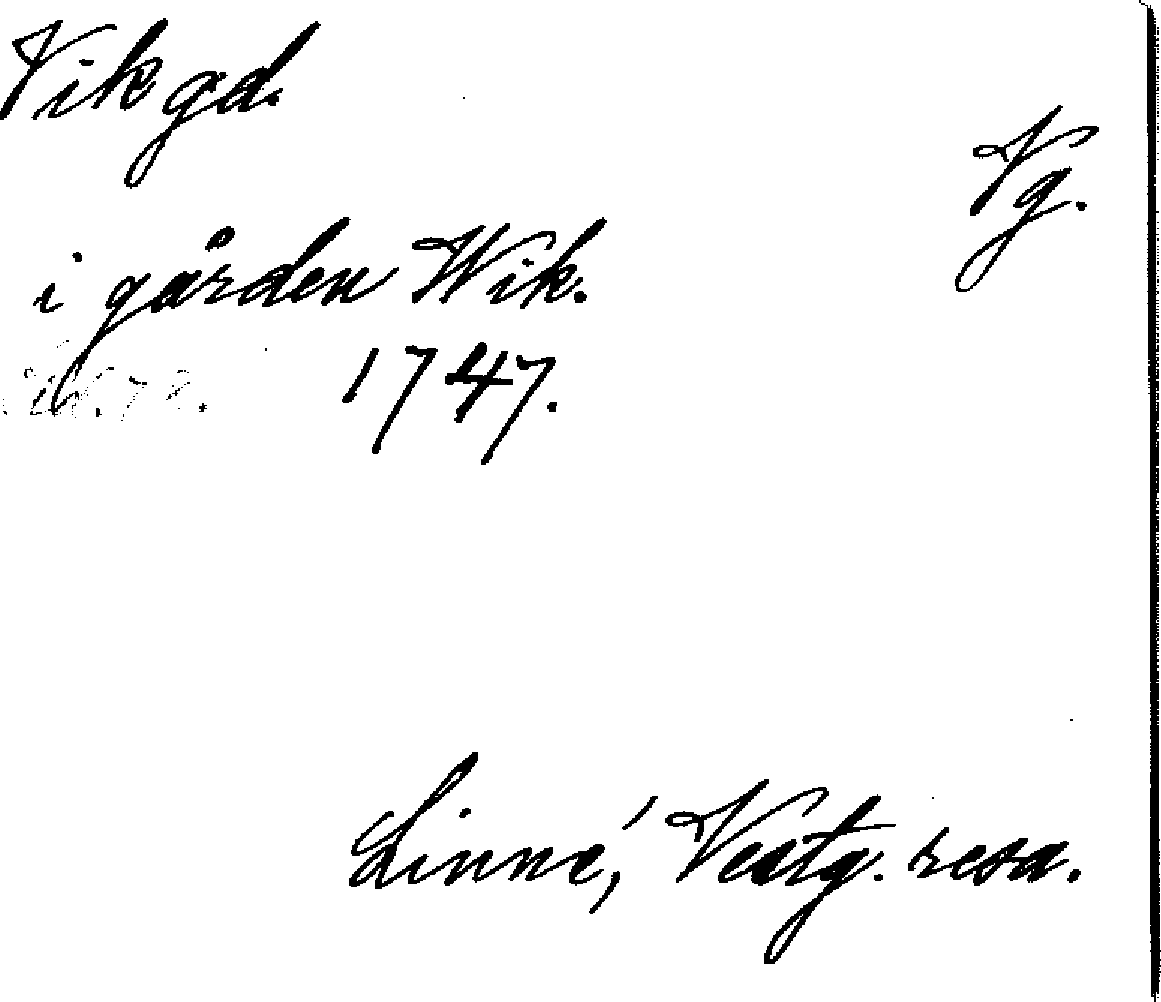 Vik gd.
Vg.
i gården Wik.
1747.
Linné, Vestg. resa.